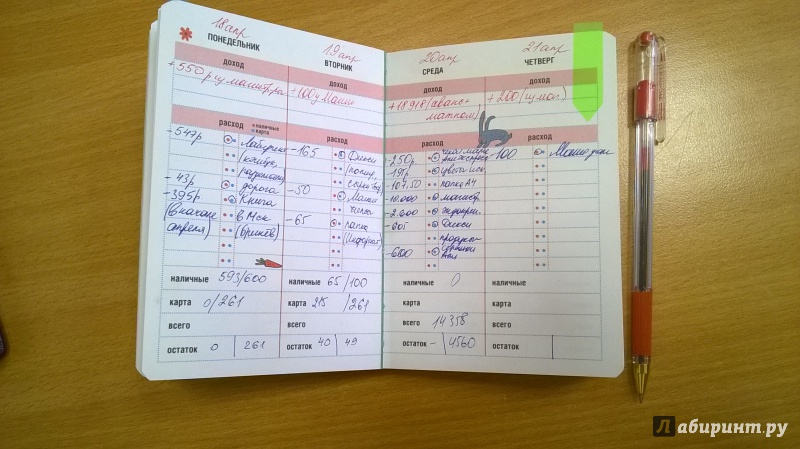 18 апр
ПОНЕДЕЛЬНИК
доход
+550р у магистра
расход
наличные
карта
-547р Лабиринт
-43р дорога
-395р Книга
(в начале в Мск
апреля)
наличные 593/600
карта 0/261
всего
остаток 0 261
19 апр
ВТОРНИК
доход
+100 у Маши
расход
-165 Дикси
-50 Маше
-65 папка
наличные 65/100
карта 215 /261
всего
остаток 40 49
20 апр
СРЕДА
доход
+18918 (аванс+
матпом)
расход
-250р
-191р цветы иск.
-107,50 папка А4
-10.000 магистр.
-2.600
-605 Дикси
продукты
-600
наличные 0
карта
всего 14358
остаток - 4560
21 апр
ЧЕТВЕРГ
доход
+200 (у мог.)
расход
-100 Маше
наличные
карта
всего
остаток
Лабиринт.ру